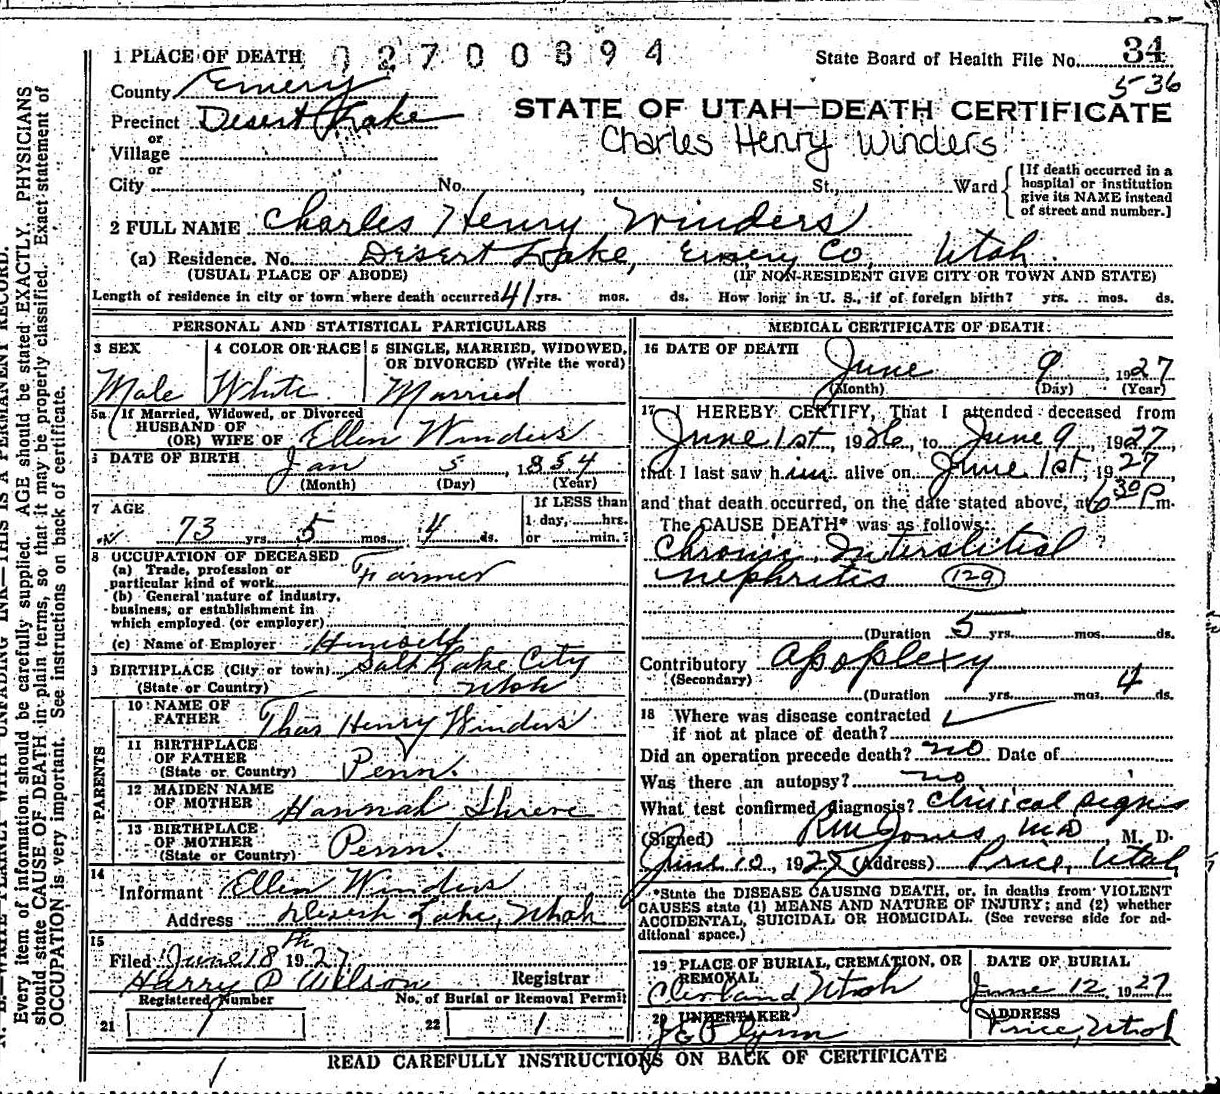 1 PLACE OF DEATH 02700894 State Board of Health File No. 34
County Emery 5-36
STATE OF UTAH—DEATH CERTIFICATE
Precinct Desert Lake
or
Charles Henry Winders
Village
or
City No. St., Ward
[If death occurred in a
hospital or institution
give its NAME instead
of street and number.]
2 FULL NAME Charles Henry Winders
(a) Residence. No. Desert Lake, Emery Co, Utah.
(USUAL PLACE OF ABODE) (IF NON-RESIDENT GIVE CITY OR TOWN AND STATE)
Length of residence in city or town where death occurred 41 yrs. mos. ds. How long in U. S., if of foreign birth? yrs. mos. ds.
PERSONAL AND STATISTICAL PARTICULARS
3 SEX 4 COLOR OR RACE 5 SINGLE, MARRIED, WIDOWED,
OR DIVORCED (Write the word)
Male White Married
5a If Married, Widowed, or Divorced
HUSBAND OF
(OR) WIFE OF Ellen Winders
6 DATE OF BIRTH Jan 5, 1854
(Month) (Day) (Year)
7 AGE If LESS than
73 yrs. 5 mos. 4 ds. 1 day, hrs.
or min.?
8 OCCUPATION OF DECEASED
(a) Trade, profession or
particular kind of work Farmer
(b) General nature of industry,
business, or establishment in
which employed (or employer)
(c) Name of Employer Himself
9 BIRTHPLACE (City or town) Salt Lake City
(State or Country) Utah
PARENTS
10 NAME OF
FATHER Thos Henry Winders
11 BIRTHPLACE
OF FATHER
(State or Country) Penn.
12 MAIDEN NAME
OF MOTHER Hannah Shreve
13 BIRTHPLACE
OF MOTHER
(State or Country) Penn.
14
Informant Ellen Winders
Address Desert Lake, Utah
15
Filed June 18th 1927
Harry P Wilson Registrar
Registered Number No. of Burial or Removal Permit
21 1 22 1
MEDICAL CERTIFICATE OF DEATH
16 DATE OF DEATH
June 9 1927
(Month) (Day) (Year)
17 I HEREBY CERTIFY, That I attended deceased from
June 1st, 1926, to June 9, 1927
that I last saw him alive on June 1st, 1927
and that death occurred, on the date stated above, at 6 30 P m.
The CAUSE DEATH* was as follows:
Chronic Interstitial
nephritis 129
(Duration 5 yrs. mos. ds.
Contributory Apoplexy
(Secondary)
(Duration yrs. mos. 4 ds.
18 Where was disease contracted
if not at place of death?
Did an operation precede death? no Date of
Was there an autopsy? no
What test confirmed diagnosis? Clinical signs
(Signed) RM Jones, MD M. D.
June 10, 1927 (Address) Price, Utah
*State the DISEASE CAUSING DEATH, or, in deaths from VIOLENT
CAUSES state (1) MEANS AND NATURE OF INJURY; and (2) whether
ACCIDENTAL, SUICIDAL OR HOMICIDAL. (See reverse side for ad-
ditional space.)
19 PLACE OF BURIAL, CREMATION, OR
REMOVAL
Cleveland Utah
DATE OF BURIAL
June 12, 1927
20 UNDERTAKER
J E Flynn
ADDRESS
Price, Utah
READ CAREFULLY INSTRUCTIONS ON BACK OF CERTIFICATE
N. B.—WRITE PLAINLY WITH UNFADING INK—THIS IS A PERMANENT RECORD.
Every item of information should be carefully supplied. AGE should be stated EXACTLY. PHYSICIANS
should state CAUSE OF DEATH in plain terms, so that it may be properly classified. Exact statement of
OCCUPATION is very important. See instructions on back of certificate.